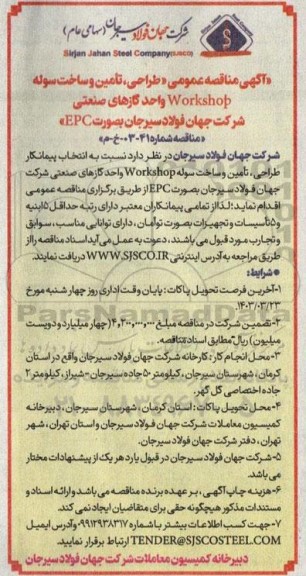 شرکت جهان فولاد سیرجان (سهامی عام)
Sirjan Jahan Steel Company(SJSCO)
«آگهی مناقصه عمومی «طراحی، تأمین و ساخت سوله
Workshop واحد گازهای صنعتی
شرکت جهان فولاد سیرجان بصورت EPC»
«مناقصه شماره ۴۱-۰۰۳-خ-م»
شرکت جهان فولاد سیرجان در نظر دارد نسبت به انتخاب پیمانکار
طراحی، تأمین و ساخت سوله Workshop واحد گازهای صنعتی شرکت
جهان فولاد سیرجان بصورت EPC از طریق برگزاری مناقصه عمومی
اقدام نماید؛ لذا از تمامی پیمانکاران معتبر دارای رتبه حداقل ۵ ابنیه
و ۵ تأسیسات و تجهیزات بصورت توأمان، دارای توانایی مناسب، سوابق
و تجارب مورد قبول می باشند، دعوت به عمل می آید اسناد مناقصه را از
طریق مراجعه به آدرس اینترنتی WWW.SJSCO.IR دریافت نمایند.
شرایط:
۱-آخرین فرصت تحویل پاکات: پایان وقت اداری روز چهار شنبه مورخ
۱۴۰۳/۰۳/۲۳.
۲-تضمین شرکت در مناقصه مبلغ ۴٫۲۰۰٫۰۰۰٫۰۰۰ (چهار میلیارد و دویست
میلیون) ریال مطابق اسناد مناقصه.
۳-محل انجام کار: کارخانه شرکت جهان فولاد سیرجان واقع در استان
کرمان، شهرستان سیرجان، کیلومتر ۵۰ جاده سیرجان-شیراز، کیلومتر ۲
جاده اختصاصی گل گهر.
۴-محل تحویل پاکات: استان کرمان، شهرستان سیرجان، دبیرخانه
کمیسیون معاملات شرکت جهان فولاد سیرجان و استان تهران، شهر
تهران، دفتر شرکت جهان فولاد سیرجان.
۵-شرکت جهان فولاد سیرجان در قبول یا رد هر یک از پیشنهادات مختار
می باشد.
۶-هزینه چاپ آگهی، بر عهده برنده مناقصه می باشد و ارائه اسناد و
مستندات مذکور هیچگونه حقی برای متقاضیان ایجاد نمی کند.
۷-جهت کسب اطلاعات بیشتر با شماره ۰۹۹۱۲۹۳۸۳۱۷ و آدرس ایمیل
TENDER@SJSCOSTEEL.COM ارتباط برقرار نمایید.
دبیرخانه کمیسیون معاملات شرکت جهان فولاد سیرجان